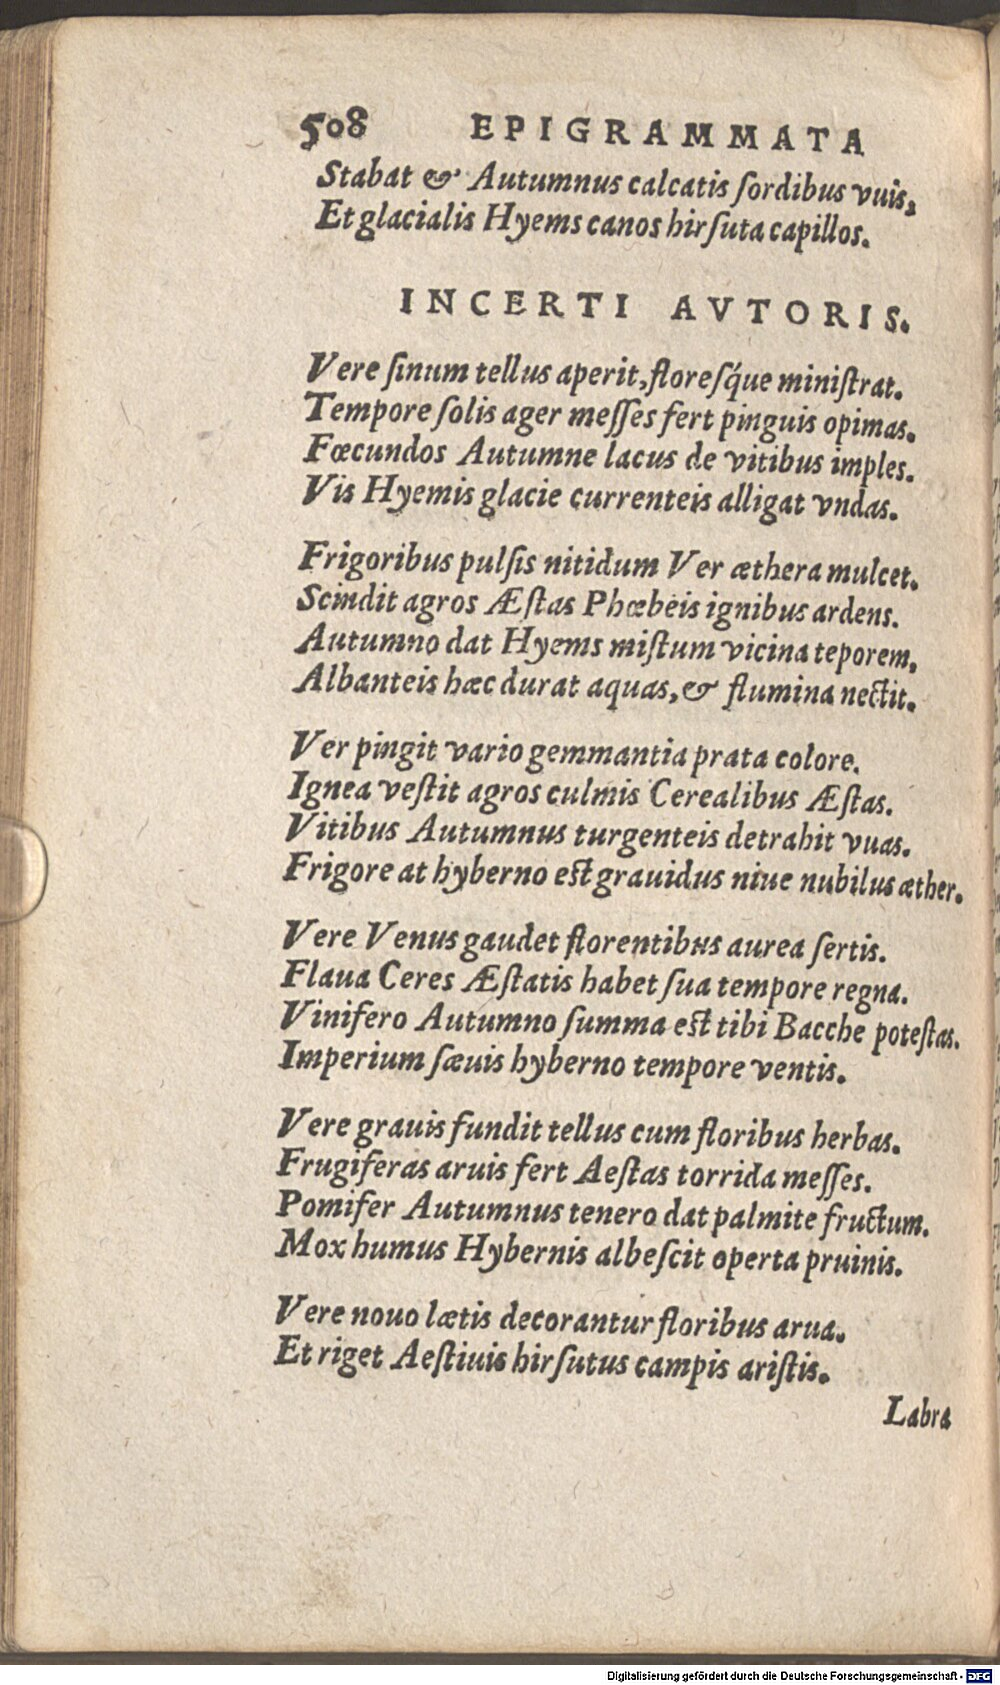 508 EPIGRAMMATA
Stabat & Autumnus calcatis ſordibus vuis,
Et glacialis Hyems canos hirſuta capillos.
INCERTI AVTORIS.
Vere ſinum tellus aperit, floreſq́ue miniſtrat.
Tempore ſolis ager meſſes fert pinguis opimas.
Fœcundos Autumne lacus de vitibus imples.
Vis Hyemis glacie currenteis alligat vndas.
Frigoribus pulſis nitidum Ver æthera mulcet.
Scindit agros Æſtas Phœbeis ignibus ardens.
Autumno dat Hyems miſtum vicina teporem,
Albanteis hæc durat aquas, & flumina nectit.
Ver pingit vario gemmantia prata colore.
Ignea veſtit agros culmis Cerealibus Æſtas.
Vitibus Autumnus turgenteis detrahit vuas.
Frigore at hyberno eſt grauidus niue nubilus æther.
Vere Venus gaudet florentibus aurea ſertis.
Flaua Ceres Æſtatis habet ſua tempore regna.
Vinifero Autumno ſumma eſt tibi Bacche poteſtas.
Imperium ſæuis hyberno tempore ventis.
Vere grauis fundit tellus cum floribus herbas.
Frugiferas aruis fert Aeſtas torrida meſſes.
Pomifer Autumnus tenero dat palmite fructum.
Mox humus Hybernis albeſcit operta pruinis.
Vere nouo lætis decorantur floribus arua.
Et riget Aeſtiuis hirſutus campis ariſtis.
Labra
Digitalisierung gefördert durch die Deutsche Forschungsgemeinschaft - DFG